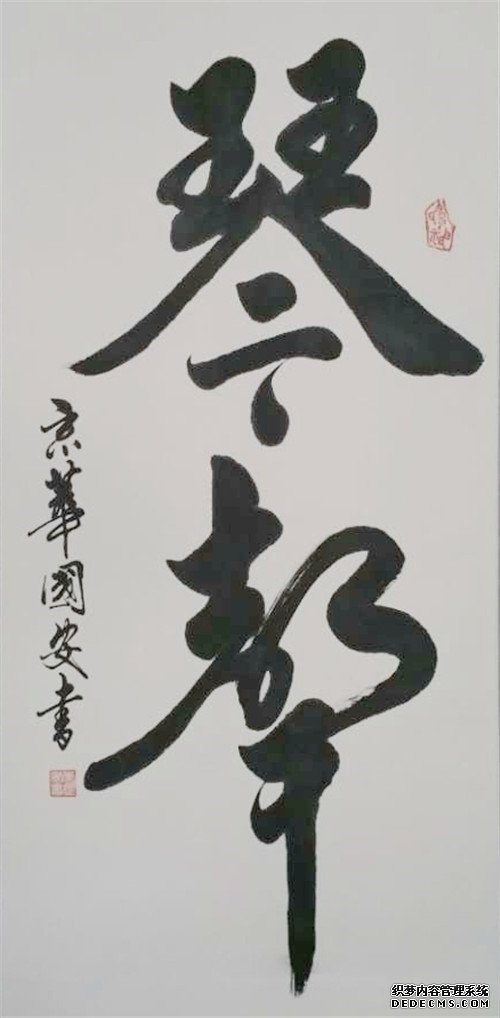 琴聲
京華國安書
织梦内容管理系统
DEDECMS.COM